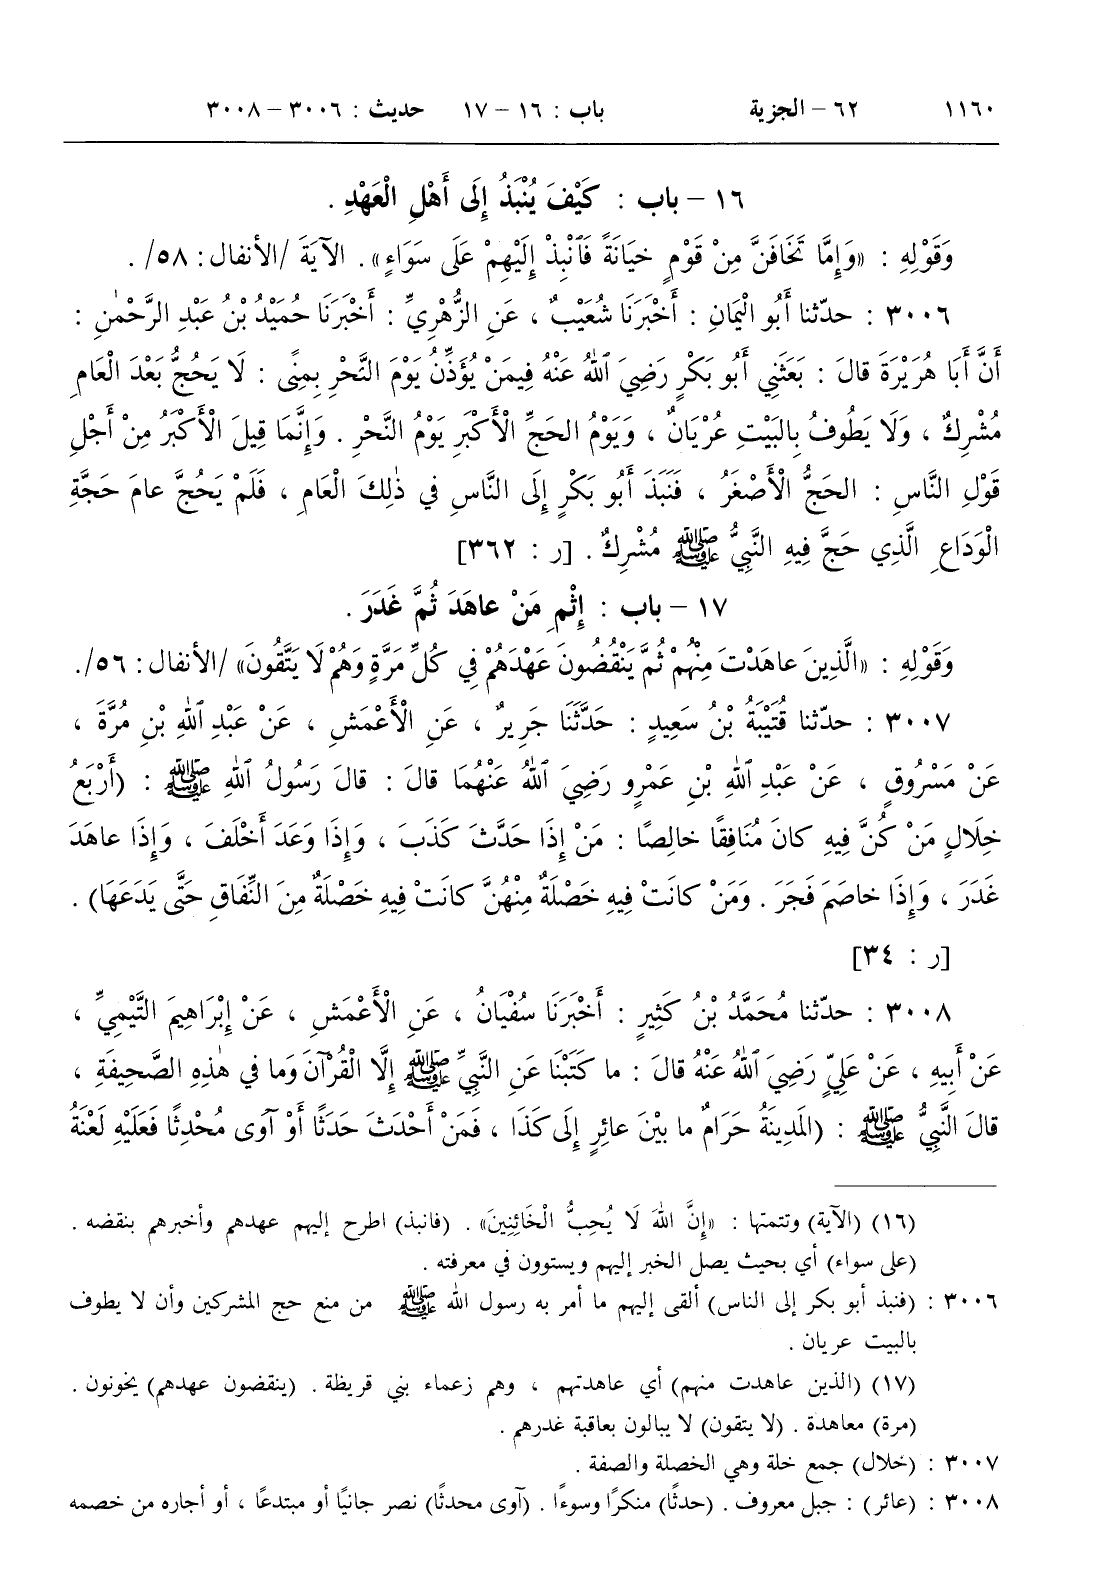 ١١٦٠ ٦٢ – الجزية باب : ١٦ – ١٧ حديث : ٣٠٠٦ – ٣٠٠٨
١٦ – باب : كَيْفَ يُنْبَذُ إِلَى أَهْلِ الْعَهْدِ .
وَقَوْلِهِ : «وَإِمَّا تَخَافَنَّ مِنْ قَوْمٍ خِيَانَةً فَٱنْبِذْ إِلَيْهِمْ عَلَى سَوَاءٍ» . الآيَةَ /الأنفال: ٥٨/ .
٣٠٠٦ : حدّثنا أَبُو الْيَمَانِ : أَخْبَرَنَا شُعَيْبٌ ، عَنِ الزُّهْرِيِّ : أَخْبَرَنَا حُمَيْدُ بْنُ عَبْدِ الرَّحْمٰنِ :
أَنَّ أَبَا هُرَيْرَةَ قالَ : بَعَثَنِي أَبُو بَكْرٍ رَضِيَ ٱللهُ عَنْهُ فِيمَنْ يُؤَذِّنُ يَوْمَ النَّحْرِ بِمِنًى : لَا يَحُجُّ بَعْدَ الْعَامِ
مُشْرِكٌ ، وَلَا يَطُوفُ بِالبَيْتِ عُرْيَانٌ ، وَيَوْمُ الحَجِّ الْأَكْبَرِ يَوْمُ النَّحْرِ . وَإِنَّمَا قِيلَ الْأَكْبَرُ مِنْ أَجْلِ
قَوْلِ النَّاسِ : الحَجُّ الْأَصْغَرُ ، فَنَبَذَ أَبُو بَكْرٍ إِلَى النَّاسِ في ذٰلِكَ الْعَامِ ، فَلَمْ يَحُجَّ عامَ حَجَّةِ
الْوَدَاعِ الَّذِي حَجَّ فِيهِ النَّبِيُّ ﷺ مُشْرِكٌ . [ر : ٣٦٢]
١٧ – باب : إِثْمِ مَنْ عاهَدَ ثُمَّ غَدَرَ .
وَقَوْلِهِ : «الَّذِينَ عاهَدْتَ مِنْهُمْ ثُمَّ يَنْقُضُونَ عَهْدَهُمْ في كُلِّ مَرَّةٍ وَهُمْ لَا يَتَّقُونَ» /الأنفال: ٥٦/.
٣٠٠٧ : حدّثنا قُتَيْبَةُ بْنُ سَعِيدٍ : حَدَّثَنَا جَرِيرٌ ، عَنِ الْأَعْمَشِ ، عَنْ عَبْدِ ٱللهِ بْنِ مُرَّةَ ،
عَنْ مَسْرُوقٍ ، عَنْ عَبْدِ ٱللهِ بْنِ عَمْرٍو رَضِيَ ٱللهُ عَنْهُمَا قالَ : قالَ رَسُولُ ٱللهِ ﷺ : (أَرْبَعُ
خِلَالٍ مَنْ كُنَّ فِيهِ كانَ مُنَافِقًا خالِصًا : مَنْ إِذَا حَدَّثَ كَذَبَ ، وَإِذَا وَعَدَ أَخْلَفَ ، وَإِذَا عاهَدَ
غَدَرَ ، وَإِذَا خاصَمَ فَجَرَ . وَمَنْ كانَتْ فِيهِ خَصْلَةٌ مِنْهُنَّ كانَتْ فِيهِ خَصْلَةٌ مِنَ النِّفَاقِ حَتَّى يَدَعَهَا) .
[ر : ٣٤]
٣٠٠٨ : حدّثنا مُحَمَّدُ بْنُ كَثِيرٍ : أَخْبَرَنَا سُفْيَانُ ، عَنِ الْأَعْمَشِ ، عَنْ إِبْرَاهِيمَ التَّيْمِيِّ ،
عَنْ أَبِيهِ ، عَنْ عَلِيٍّ رَضِيَ ٱللهُ عَنْهُ قالَ : ما كَتَبْنَا عَنِ النَّبِيِّ ﷺ إِلَّا الْقُرْآنَ وَما في هٰذِهِ الصَّحِيفَةِ ،
قالَ النَّبِيُّ ﷺ : (المَدِينَةُ حَرَامٌ ما بَيْنَ عائِرٍ إِلَى كَذَا ، فَمَنْ أَحْدَثَ حَدَثًا أَوْ آوَى مُحْدِثًا فَعَلَيْهِ لَعْنَةُ
(١٦) (الآية) وتتمتها : «إِنَّ اللهَ لَا يُحِبُّ الْخَائِنِينَ» . (فانبذ) اطرح إليهم عهدهم وأخبرهم بنقضه .
(على سواء) أي بحيث يصل الخبر إليهم ويستوون في معرفته .
٣٠٠٦ : (فنبذ أبو بكر إلى الناس) ألقى إليهم ما أمر به رسول الله ﷺ من منع حج المشركين وأن لا يطوف
بالبيت عريان .
(١٧) (الذين عاهدت منهم) أي عاهدتهم ، وهم زعماء بني قريظة . (ينقضون عهدهم) يخونون .
(مرة) معاهدة . (لا يتقون) لا يبالون بعاقبة غدرهم .
٣٠٠٧ : (خلال) جمع خلة وهي الخصلة والصفة .
٣٠٠٨ : (عائر) : جبل معروف . (حدثًا) منكرًا وسوءًا . (آوى محدثًا) نصر جانيًا أو مبتدعًا ، أو أجاره من خصمه